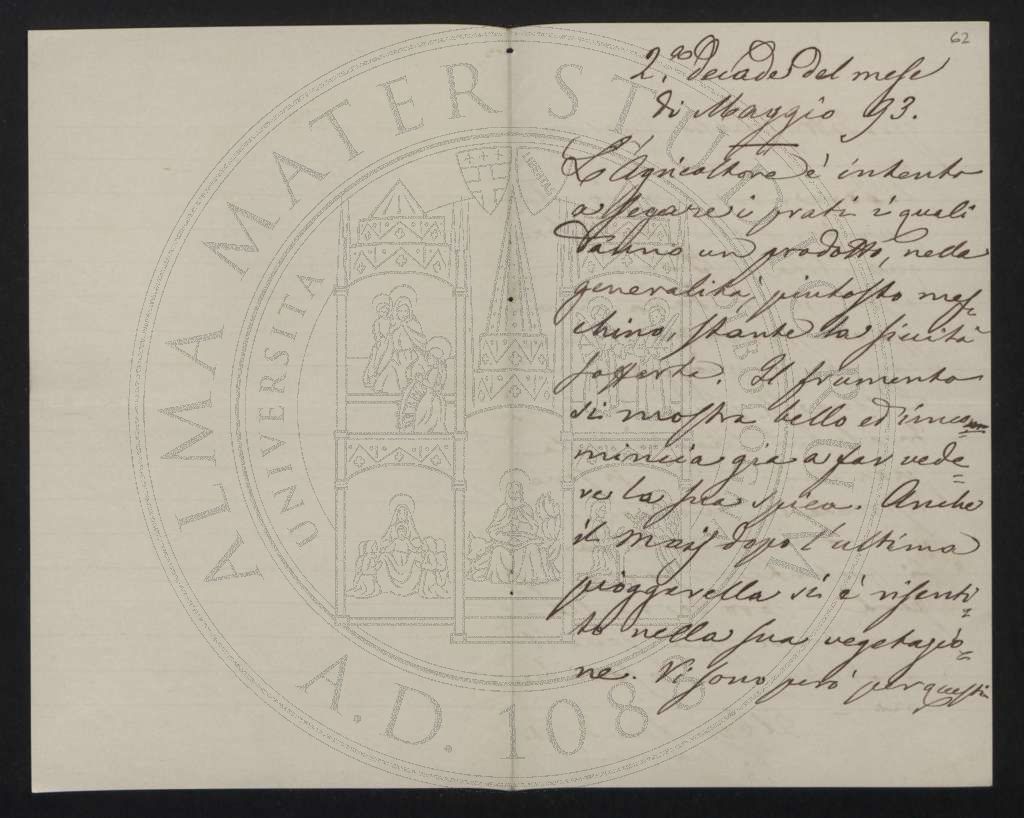 62
2.da Decade del mese
di Maggio 93.
L'Agricoltore è intento
a segare i prati i quali
danno un prodotto, nella
generalità, piutosto mes=
chino, stante la siccità
sofferta. Il frumento
si mostra bello ed inco=
mincia già a far vede=
re la sua spica. Anche
il Mais dopo l'ultima
pioggarella si è risenti=
to nella sua vegetazio=
ne. Vi sono però per questi
ALMA MATER STUDIORUM
UNIVERSITA
A.D. 1088